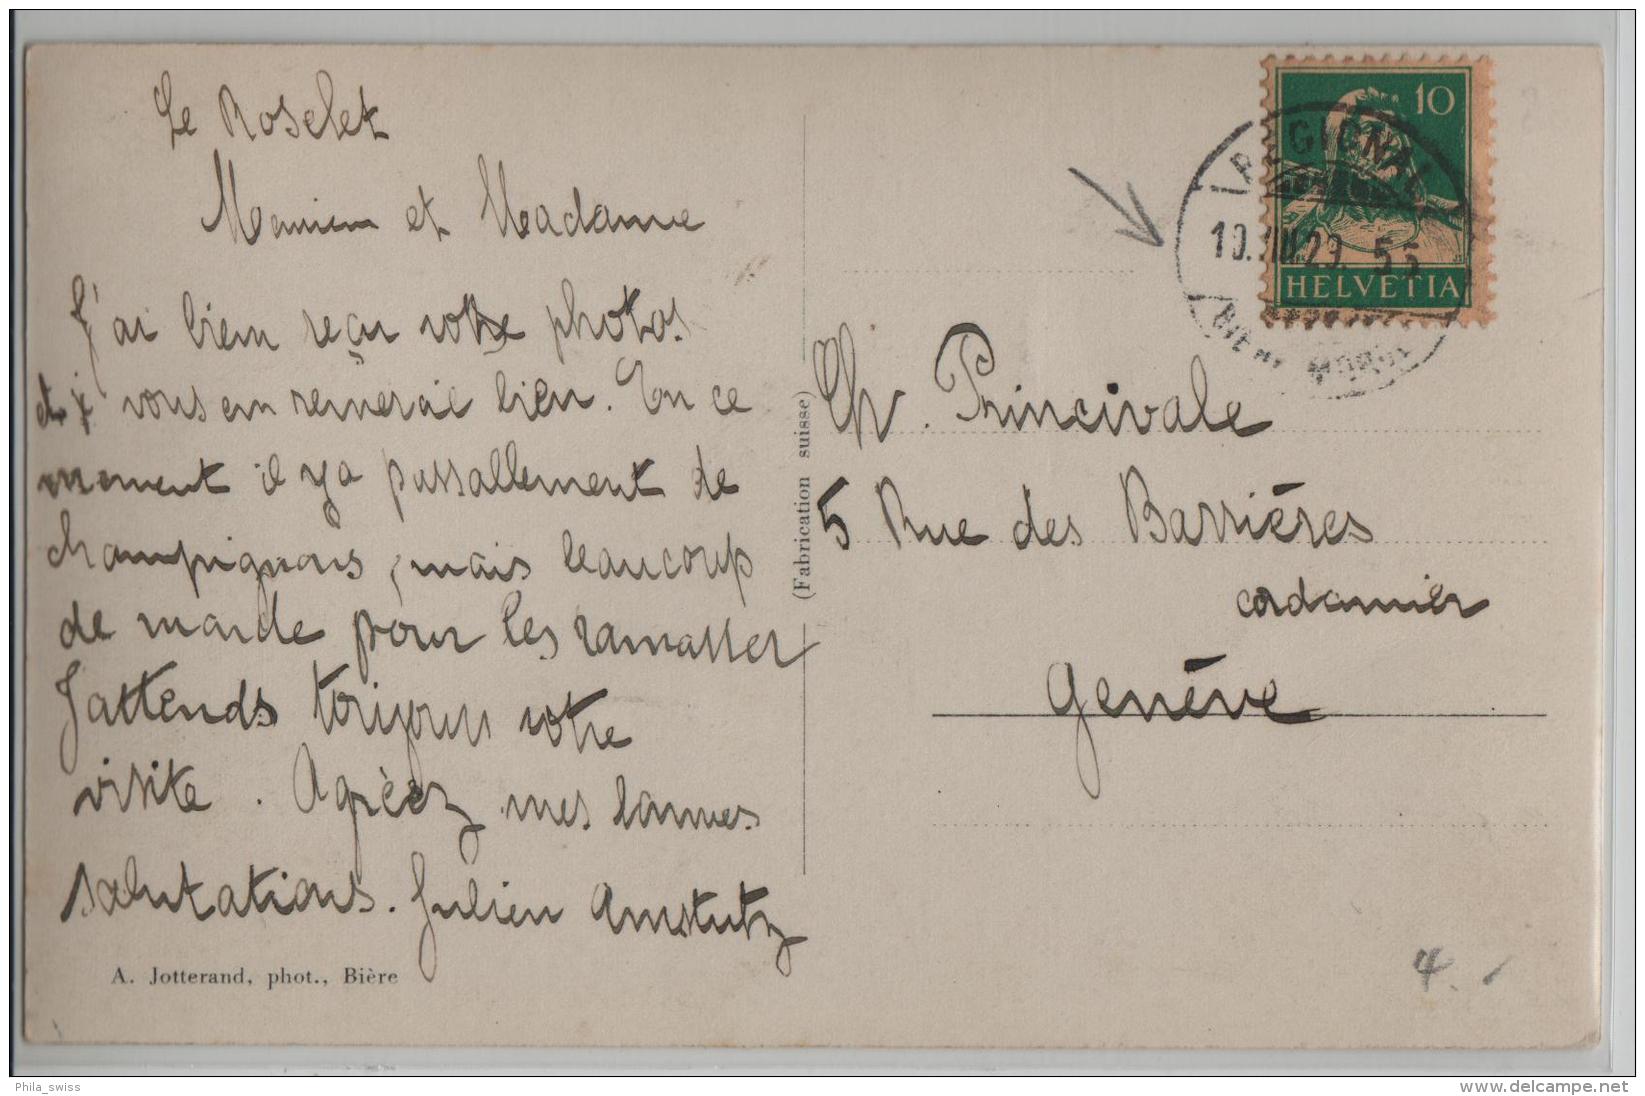 Le Roselet
Monsieur et Madame
J'ai bien reçu votre photos
et j vous en remercie bien. En ce
moment il y a passallement de
champignons, mais beaucoup
de monde pour les ramasser
J'attends toujours votre
visite. Agréez mes bonnes
salutations. Julien Amstutz
A. Jotterand, phot., Bière
(Fabrication suisse)
10
HELVETIA
REGIONAL
10. VIII 29. 55
BIERE
Ch. Princivale
5 Rue des Barrières
cordonnier
Genève
4.-
Phila_swiss
www.delcampe.net